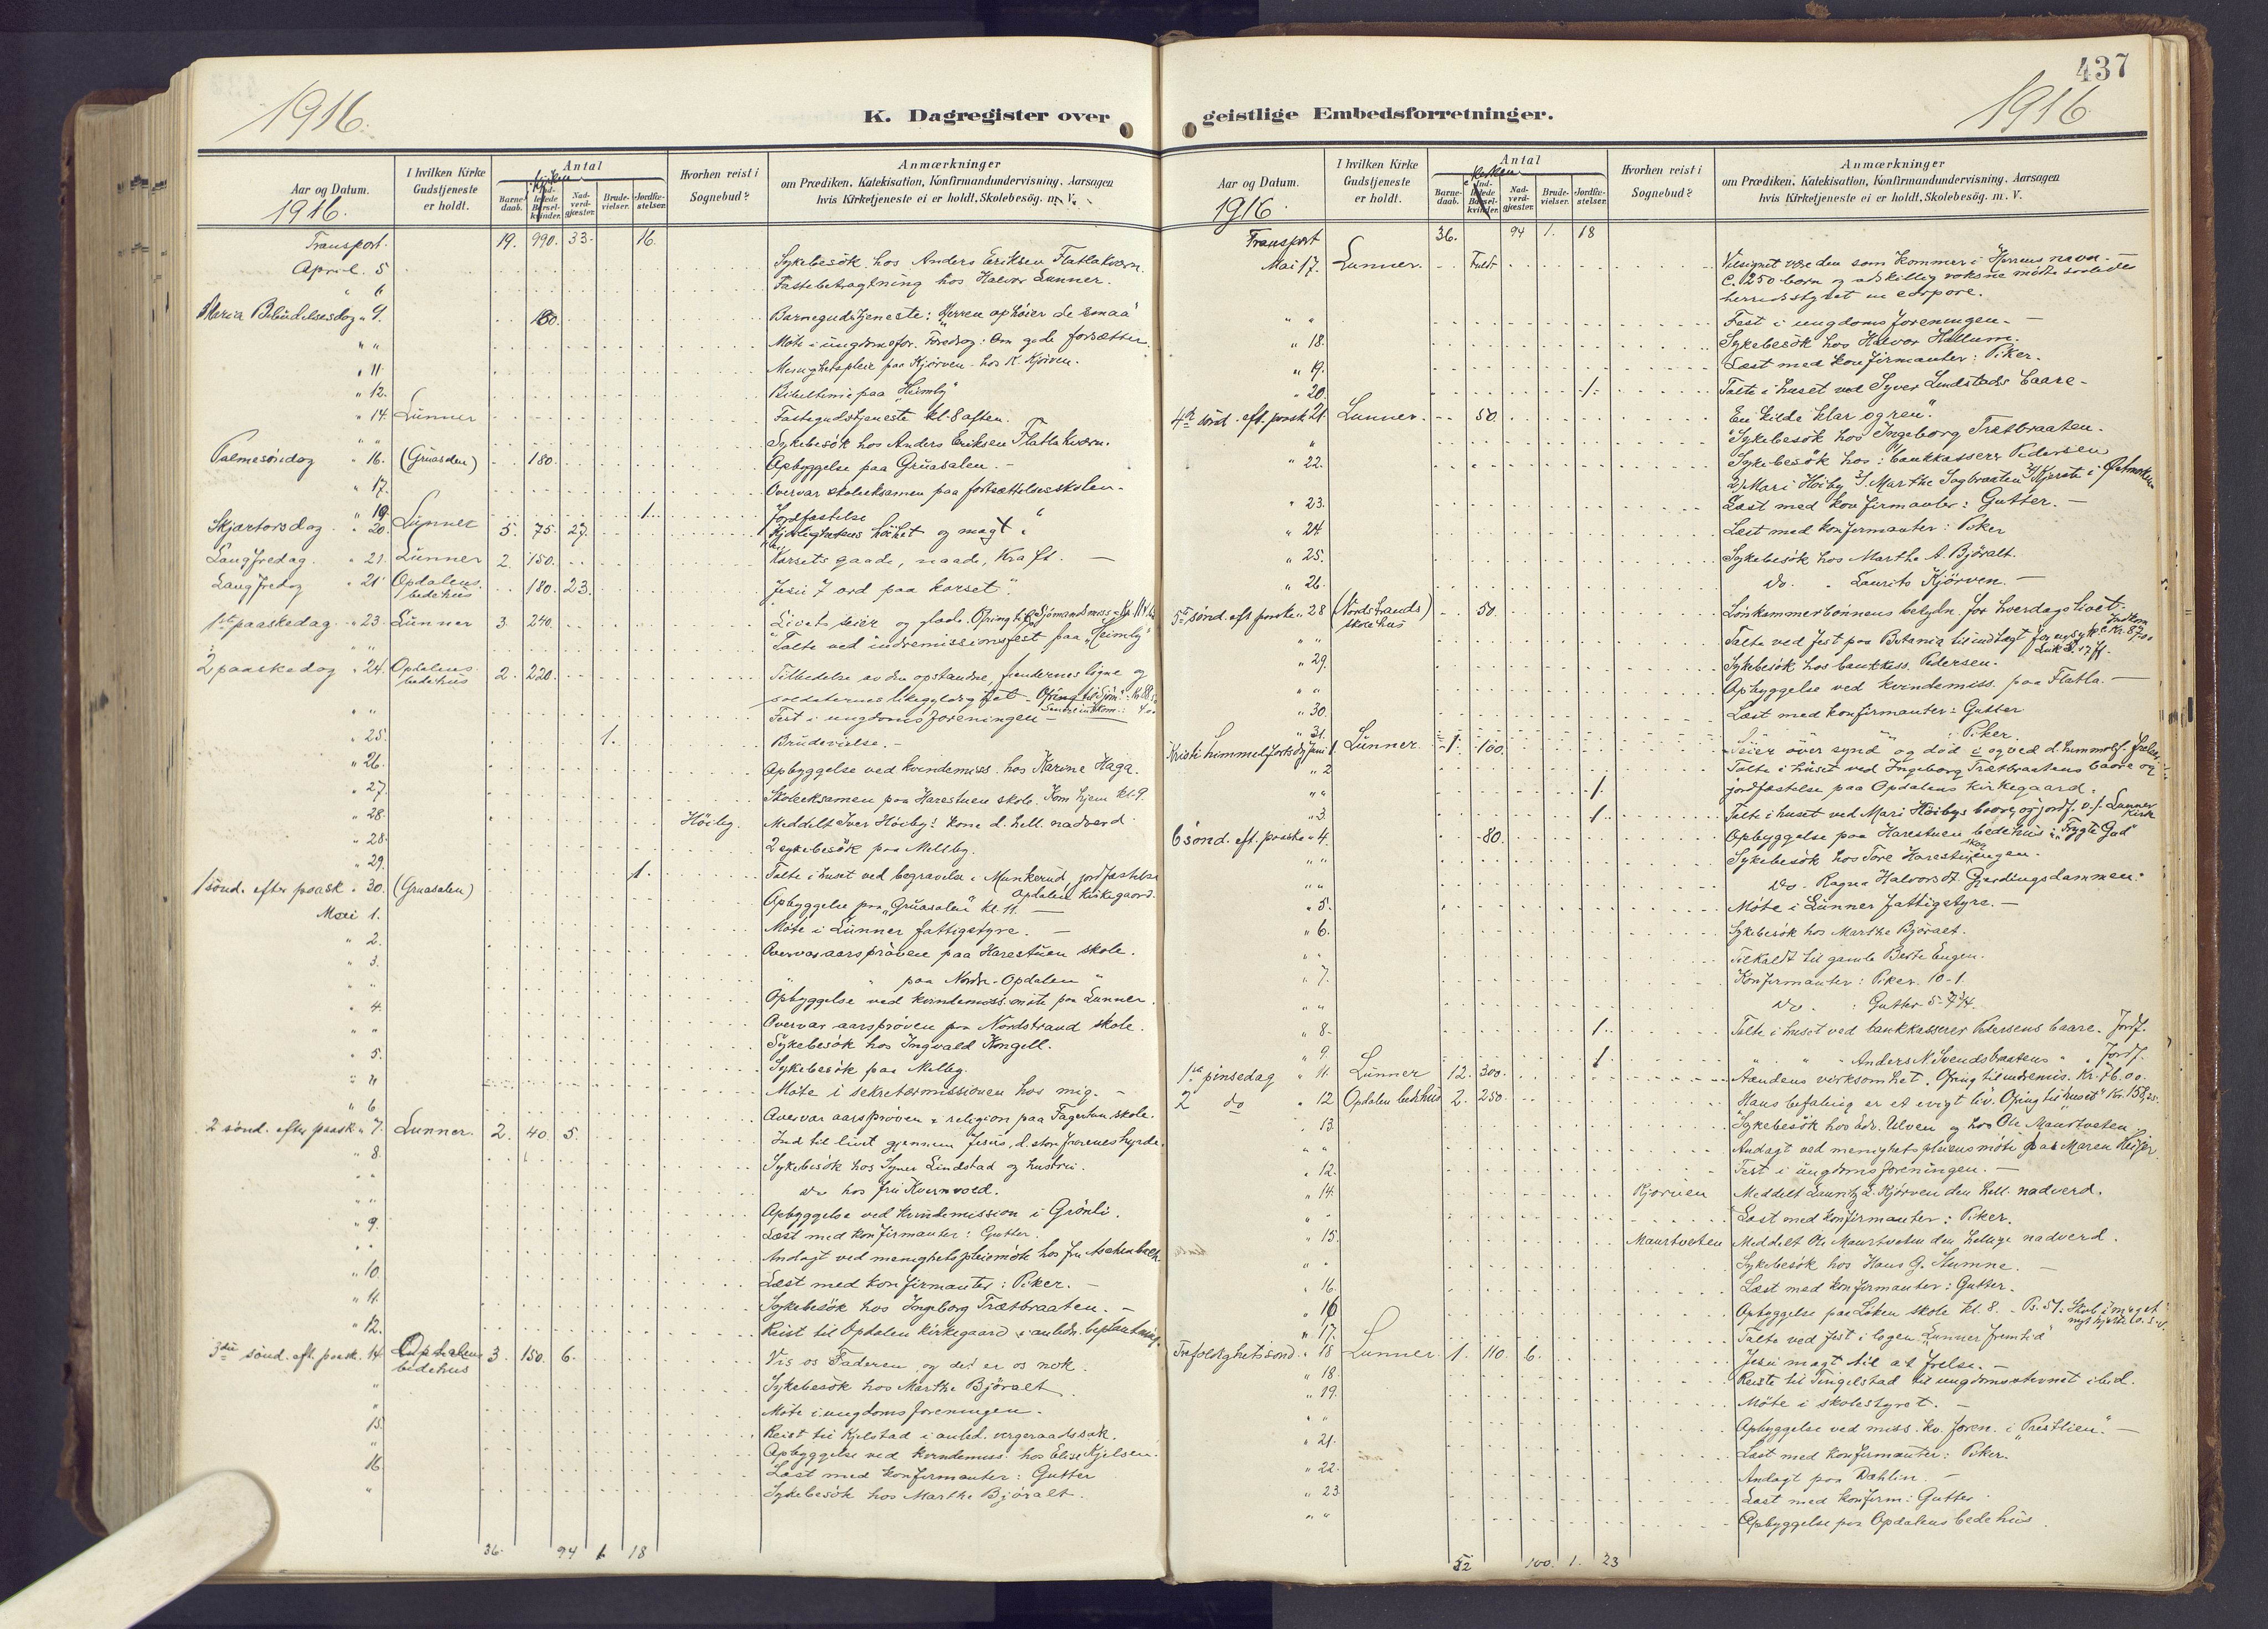 1916.
K. Dagregister over
Aar og Datum.
1916.
I hvilken Kirke Gudstjeneste er holdt.
Antal
Barne-daab.
Nad-verd-gjæster.
Brude-vielser.
Jordfæ-stelser.
Hvorhen reist i Sognebud?
Anmærkninger
om Prædiken, Katekisation, Konfirmandundervisning, Aarsagen
hvis Kirketjeneste ei er holdt, Skolebesøg. m. V.
Transport. 19. 990. 33. 16.
April. 5 Sykebesök hos Anders Eriksen Flatlakværn.
" 6 Fastebetragtning hos Halvor Lunner.
Maria Bebudelsesdag " 9. 180. Barnegudstjeneste: Herren ophöier de smaa"
" " Möte i ungdomsfor. Foredrag: Om gode forsætter.
" 11. Menighetspleie paa Kjörven hos K. Kjörven.
" 12. Bibeltime paa "Heimly"
" 14. Lunner Fastegudstjeneste kl. 8 aften.
" " Sykebesök hos Anders Eriksen Flatlakværn.
Palmesöndag " 16. (Gruasalen) 180. Opbyggelse paa Gruasalen. -
" 17. Overvar skoleeksamen paa fortsættelsesskolen.
" 19. 1. Jordfæstelse
Skjærtorsdag " 20. Lunner 5. 75. 27. Kjærlighetens höihet og magt "
Langfredag. " 21. Lunner 2. 150. Korsets gaade, naade, kraft. -
Langfredag " 21 Opdalens bedehus 180. 23. Jesu 7 ord paa korset".
1ste paaskedag " 23. Lunner 3 240. Livets seier og glæde. Ofring til Sjömandsmiss.
" " Talte ved indremissionsfest paa "Heimly"
2 paaskedag " 24. Opdalens bedehus 2. 220. Tilbedelse av den opstandne, fiendernes lögne og
soldaternes likegyldighet - Ofring til Sjöm.
" " Fest i ungdomsforeningen -
" 25. 1. Brudevielse. -
" 26. Opbyggelse ved kvindemiss. hos Karine Haga.
" 27. Skoleeksamen paa Harestuen skole. Kom hjem kl. 9.
" 28. Höiby. Meddelt Iver Höiby's kone d. hell. nadverd
" 28. 2 sykebesök paa Mellby.
" 29. 1. Talte i huset ved begravelse i Munkerud, jordfæstelse
Opdalen kirkegaard.
1 sönd. efter paask. " 30. (Gruasalen) Opbyggelse paa "Gruasalen" kl. 11. -
Mai 1. Möte i Lunner fattigstyre. -
" 2. Overvar aarspröven paa Harestuen skole.
" 3. " " paa Nordre-Opdalen "
" " Opbyggelse ved kvindemiss. möte paa Lunner.
" 4. Overvar aarspröven paa Nordstrand skole.
" " Sykebesök hos Ingvald Kongell.
" 5. Sykebesök paa Melby.
" " Möte i sekretærmissionen hos mig. -
" 6. Overvar aarspröven i religion paa Fagertun skole.
2 sönd. efter paask. " 7. Lunner. 2. 40. 5. Ind til livet gjennem Jesus, d. store faarenes hyrde.
" 8. Sykebesök hos Syver Lindstad og hustru.
" " do hos fru Kvernvold.
" " Opbyggelse ved kvindemission i Grönli.
" 9. Læst med konfirmanter: Gutter.
" " Andagt ved menighetspleiemöte hos fru Aschenbach
" 10. Læst med konfirmanter: Piker. -
" 11. Sykebesök hos Ingeborg Trætbraaten. -
" 12. Reist til Opdalen kirkegaard i anledn. beplantning.
3die sönd. eft. paask. 14. Opdalens bedehus 3. 150. 6. Vis os Faderen og det er os nok.
" Sykebesök hos Marthe Björalt.
" Möte i ungdomsforeningen.
15. Reist til Kjelstad i anled. vergeraadssak.
" Opbyggelse ved kvindemiss. hos Elise Kjelsen.
16. Læst med konfirmanter: Gutter
" Sykebesök hos Marthe Björalt.
36. 94 1. 18
437
1916
geistlige Embedsforretninger.
Aar og Datum.
1916.
I hvilken Kirke Gudstjeneste er holdt.
Antal
Barne-daab.
Nad-verd-gjæster.
Brude-vielser.
Jordfæ-stelser.
Hvorhen reist i Sognebud?
Anmærkninger
om Prædiken, Katekisation, Konfirmandundervisning, Aarsagen
hvis Kirketjeneste ei er holdt, Skolebesøg. m. V.
Transport 36. 94 1. 18
Mai 17. Lunner. Fuldt Velsignet være den som kommer i Herrens navn. -
C. 250 börn og adskillig voksne mötte saaledes
herredsstyret in corpore.
" " Fest i ungdomsforeningen. -
" 18. Sykebesök hos Halvor Hallum.
" 19. Læst med konfirmanter: Piker.
" 20. 1. Talte i huset ved Syver Lindstads baare -
4de sönd. eft. paask 21. Lunner. 50. En kilde klar og ren".
" Sykebesök hos Ingeborg Trætbraaten.
" 22. Sykebesök hos: 1/ bankkasserer Pedersen
2/ Mari Höiby 3/ Marthe Sagbraaten 4/ Kjersti i Östmarken
" 23. Læst med konfirmanter: Gutter. -
" 24. Læst med konfirmanter: Piker
" 25. Sykebesök hos Marthe A. Björalt.
" 26. do. " Laurits Kjörven. -
5te sönd. eft paaske " 28 (Nordstrands skolehus) 50. Lönkammerbönnens betydn. for hverdagslivet.
" " Talte ved fest paa Betania til indtægt for
" 29. Sykebesök hos bankkass. Pedersen.
" " Opbyggelse ved kvindemiss. paa Flatla. -
" 30. Læst med konfirmanter: Gutter
" 31. " " : Piker.
Kristi himmelfartsdag Juni 1. Lunner. 1. 100. Seier over synd og död i og ved d. himmelf. frelser
" 2 Talte i huset ved Ingeborg Trætbraatens baare og
" " 1. jordfæstelse paa Opdalens kirkegaard.
" 3. 1. Talte i huset ved Mari Höibys baare og jordf. v./ Lunner Kirk
6 sönd. eft. paaske " 4. 80. Opbyggelse paa Harestuen bedehus: "Frygte Gud"
" " Sykebesök hos Tore Harestuengen.
" " do. Ragna Halvorsdt. Gjerdingsdammen.
" 5. Möte i Lunner fattigstyre. -
" 6. Sykebesök hos Marthe Björalt.
" " Tilkaldt til gamle Berte Engen.
" 7. Konfirmanter: Piker. 10-1.
" " do. : Gutter 5-7 1/4.
" 8. 1. Talte i huset ved bankkasserer Pedersens baare. Jordf.
" 9. 1. " " " Anders N. Svendsbraatens " . Jordf.
1ste pinsedag " 11. Lunner 12. 300. Aandens verksomhet. Ofring til indremis. Kr. 76.00.
2 do " 12 Opdalen bedehus 2. 250. Hans befaling er et evigt liv. Ofring til "huset" Kr. 158,25.
" 13. Sykebesök hos Edv. Ulven og hos Ole Maurtveten.
" " Andagt ved menighetspleiens möte hos Maren Heijer.
" 12. Fest i ungdomsforeningen. -
" 14. Kjörven Meddelt Lauritz L. Kjörven den hell. nadverd.
" " Læst med konfirmanter: Piker.
" 15. Maurtveten Meddelt Ole Maurtveten den hellige nadverd.
" " Sykebesök hos Hans G. Humne. -
" 16. Læst med konfirmanter: Gutter.
" 16 Opbyggelse paa Löken skole kl. 8. - Ps. 51:
" 17. Talte ved fest i logen "Lunner fremtid"
Trefoldighetssönd. " 18 Lunner. 1. 110. 6. Jesu magt til at frelse. -
" 18. Reiste til Tingelstad til ungdomsstevnet ibid.
" 19. Möte i skolestyret. -
" " Opbyggelse ved miss. kv. foren. i "Prestlien". -
" 21. Læst med konfirmanter: Piker.
" 22. Andagt paa Dæhlin. -
" 23. Læst med konfirm: Gutter
" " Opbyggelse paa Opdalens bedehus.
52 100. 1. 23